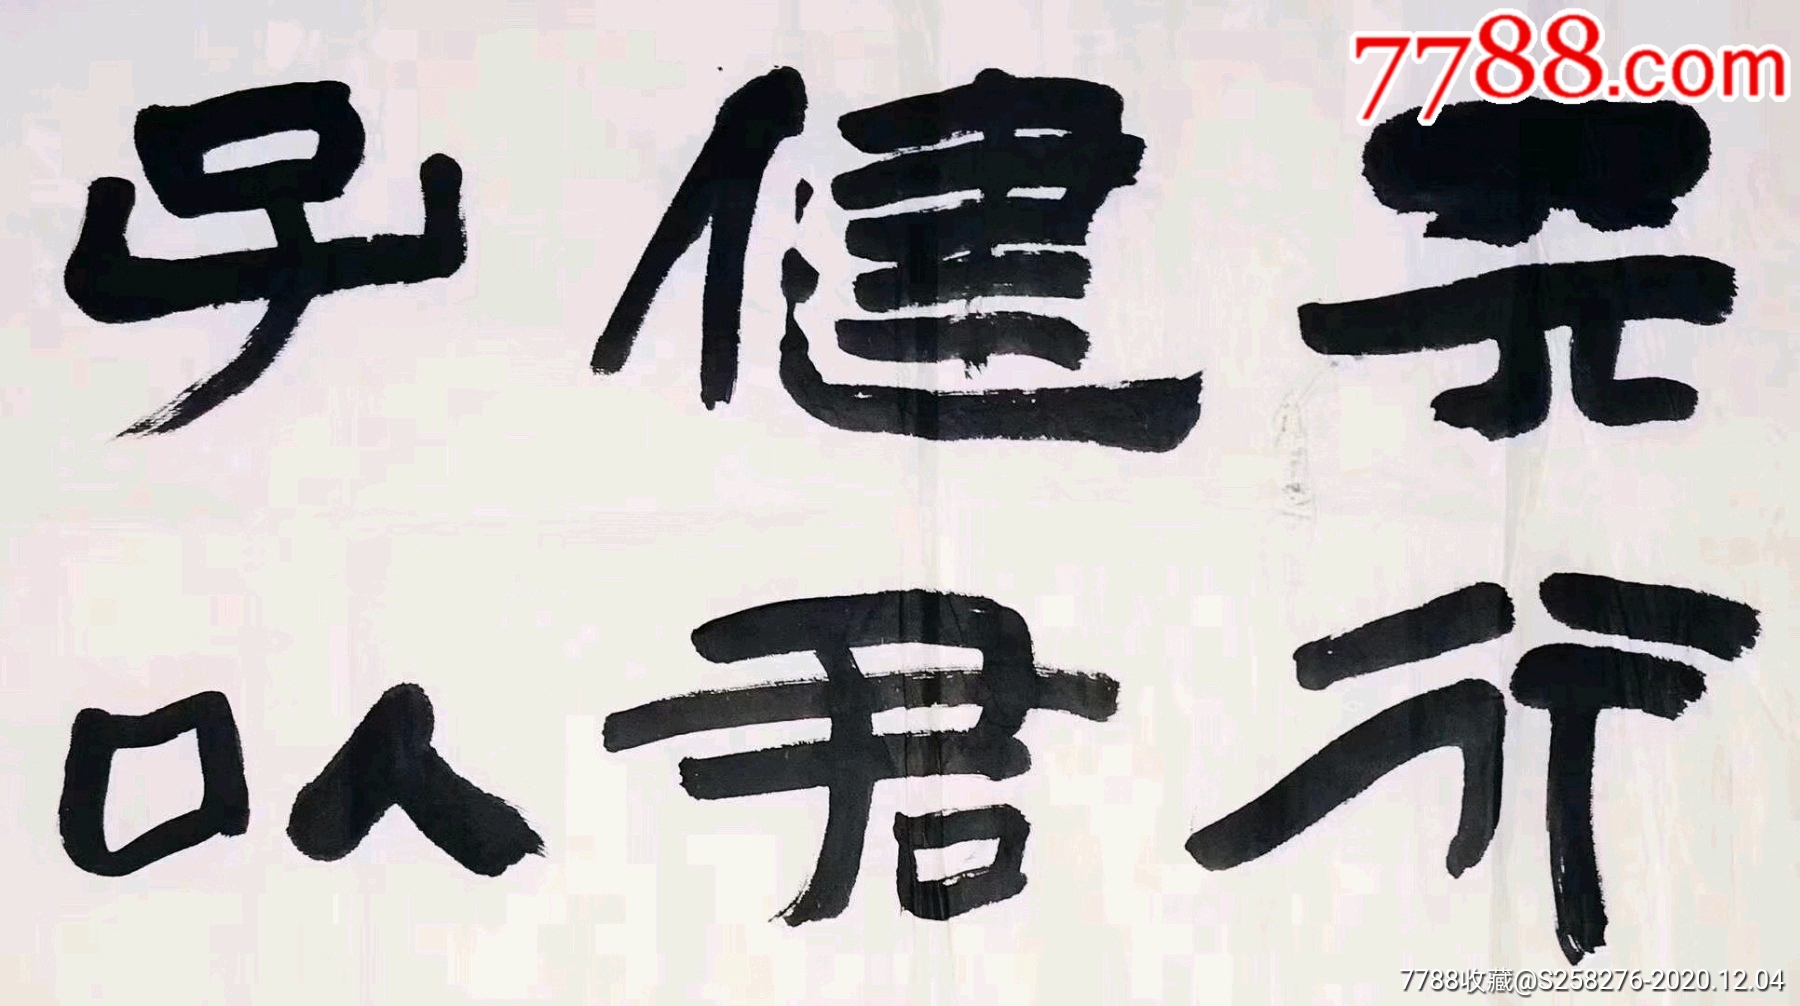 7788.com
天行
健君
子以
7788收藏@S258276-2020.12.04